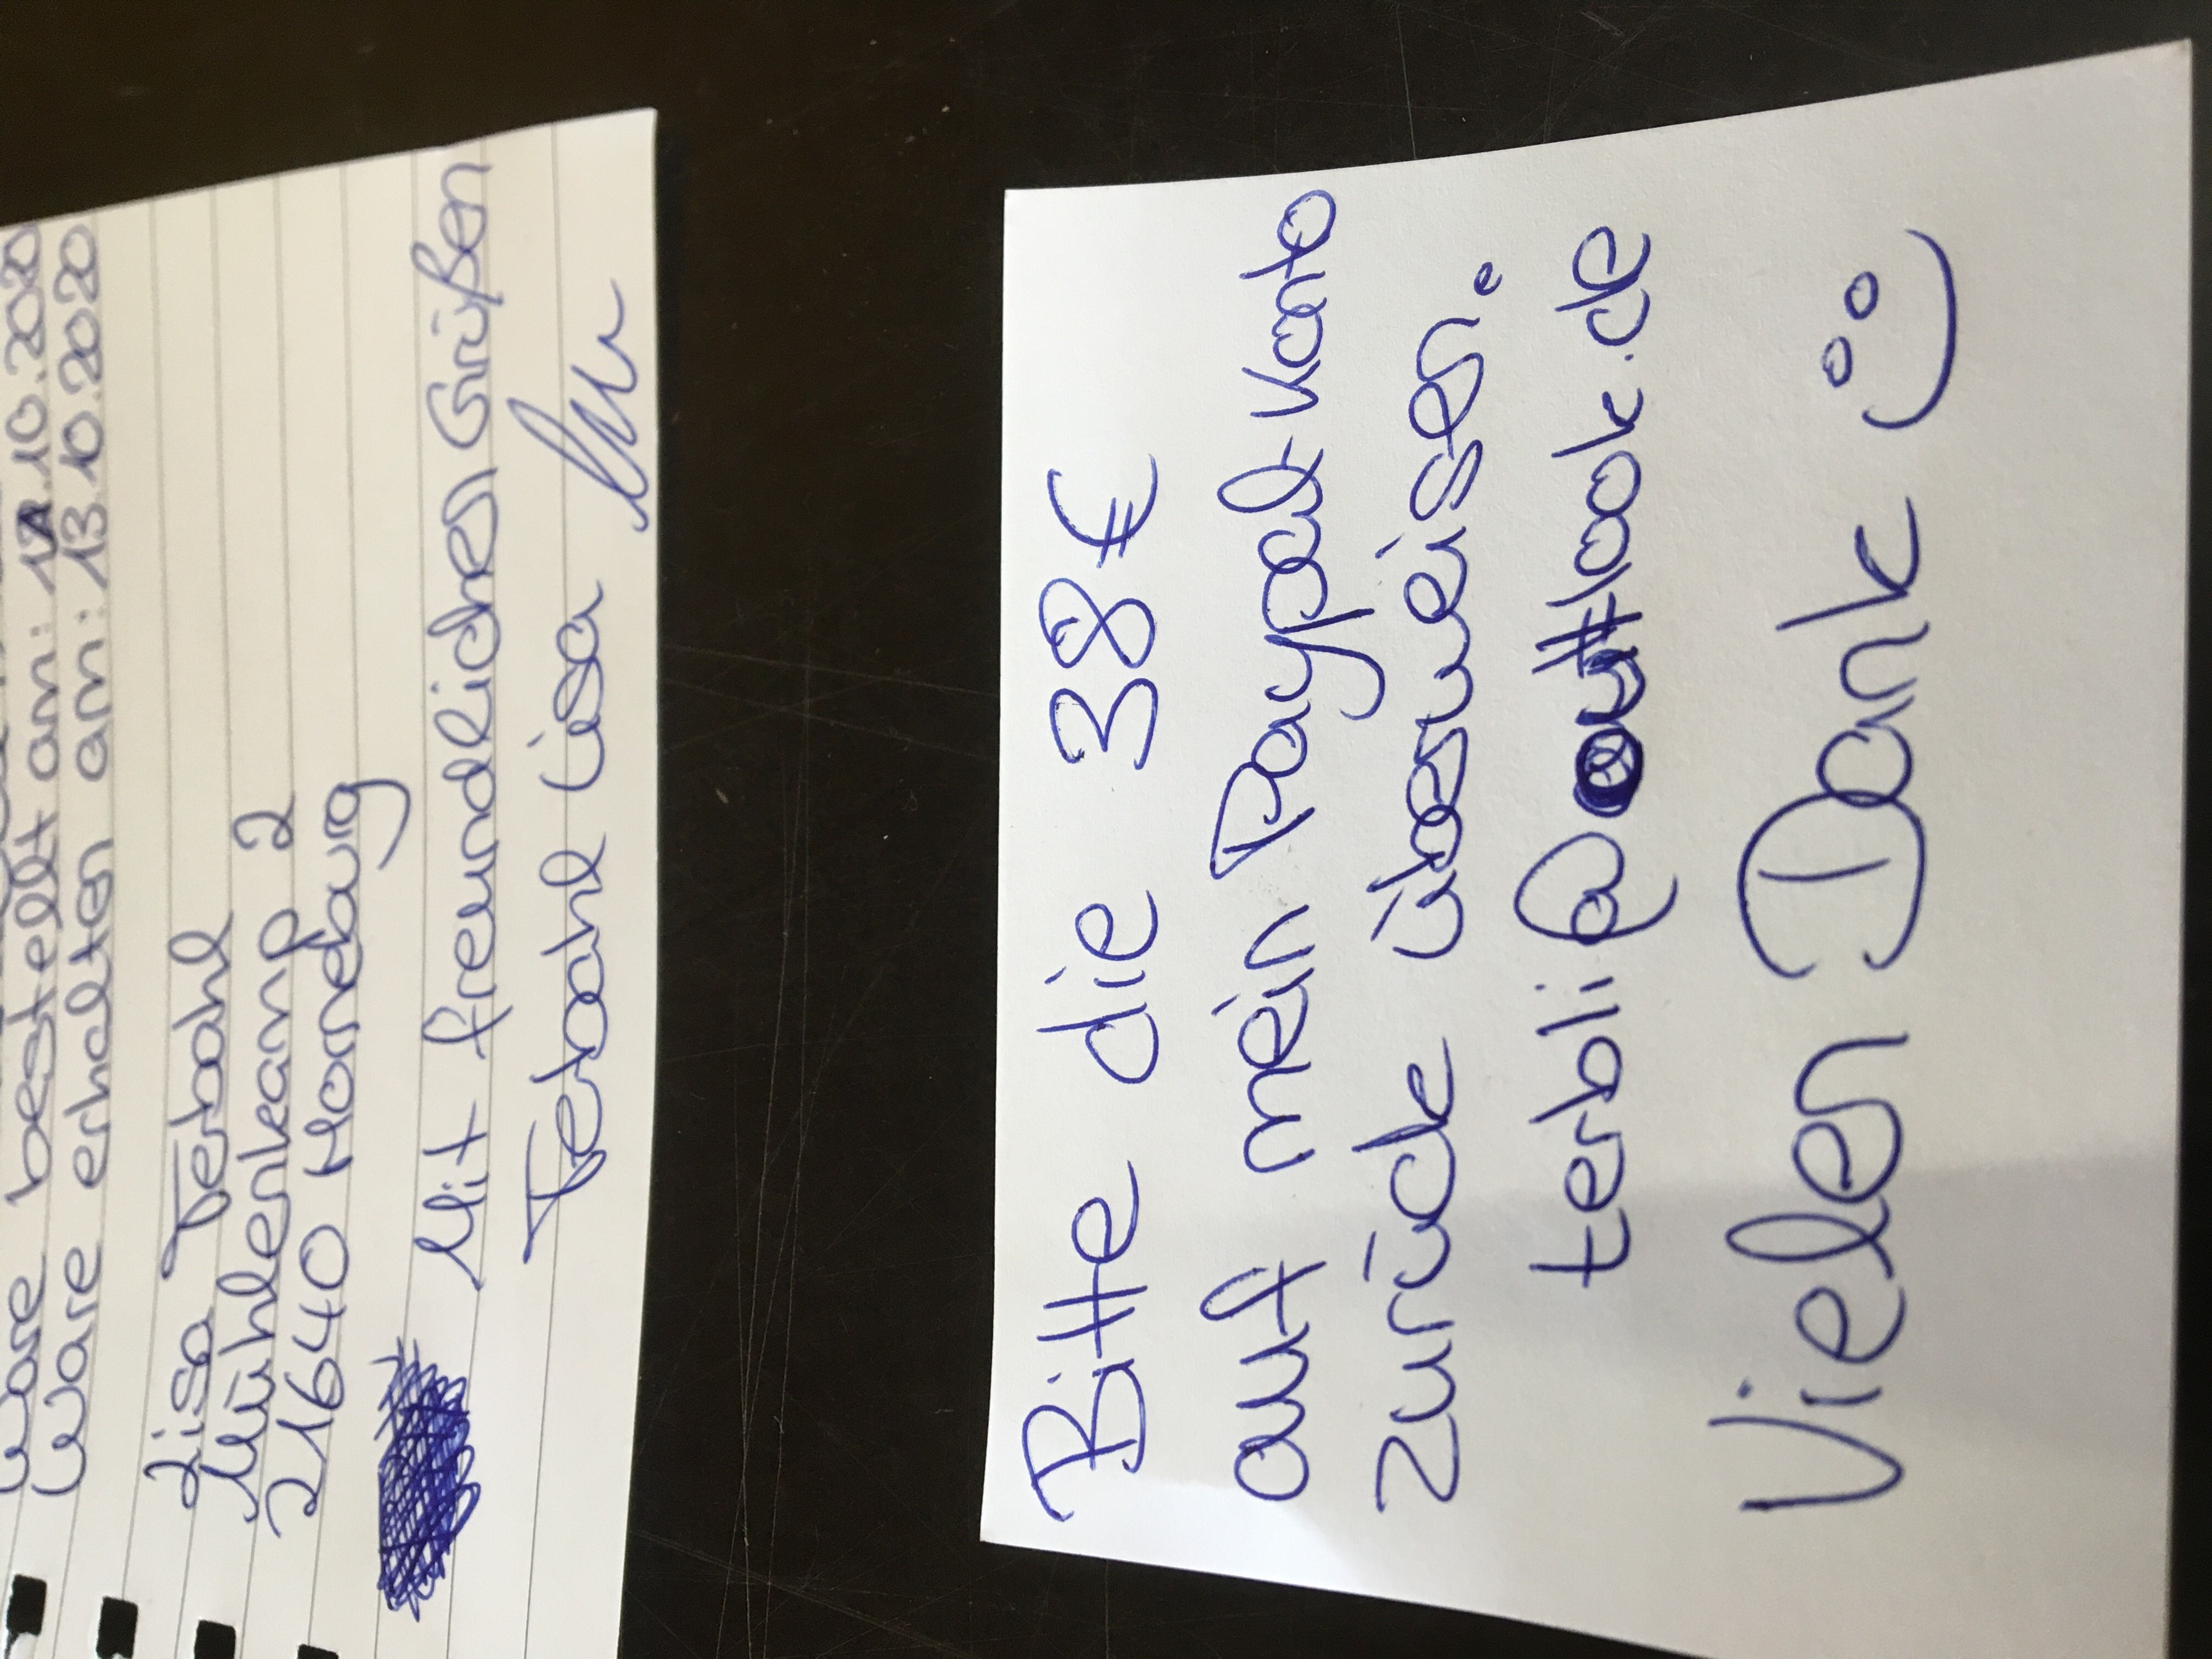 Ware bestellt am: 12.10.2020
Ware erhalten am: 13.10.2020
Lisa Terbahl
Mühlenkamp 2
21640 Horneburg
Mit freundlichen Grüßen
Terbahl Lisa
Bitte die 38€
auf mein Paypal-Konto
zurück überweisen.
terbli@outlook.de
Vielen Dank